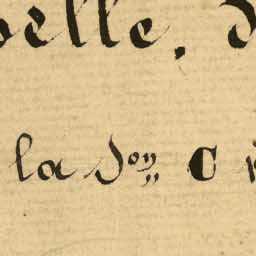 elle,
la Son C